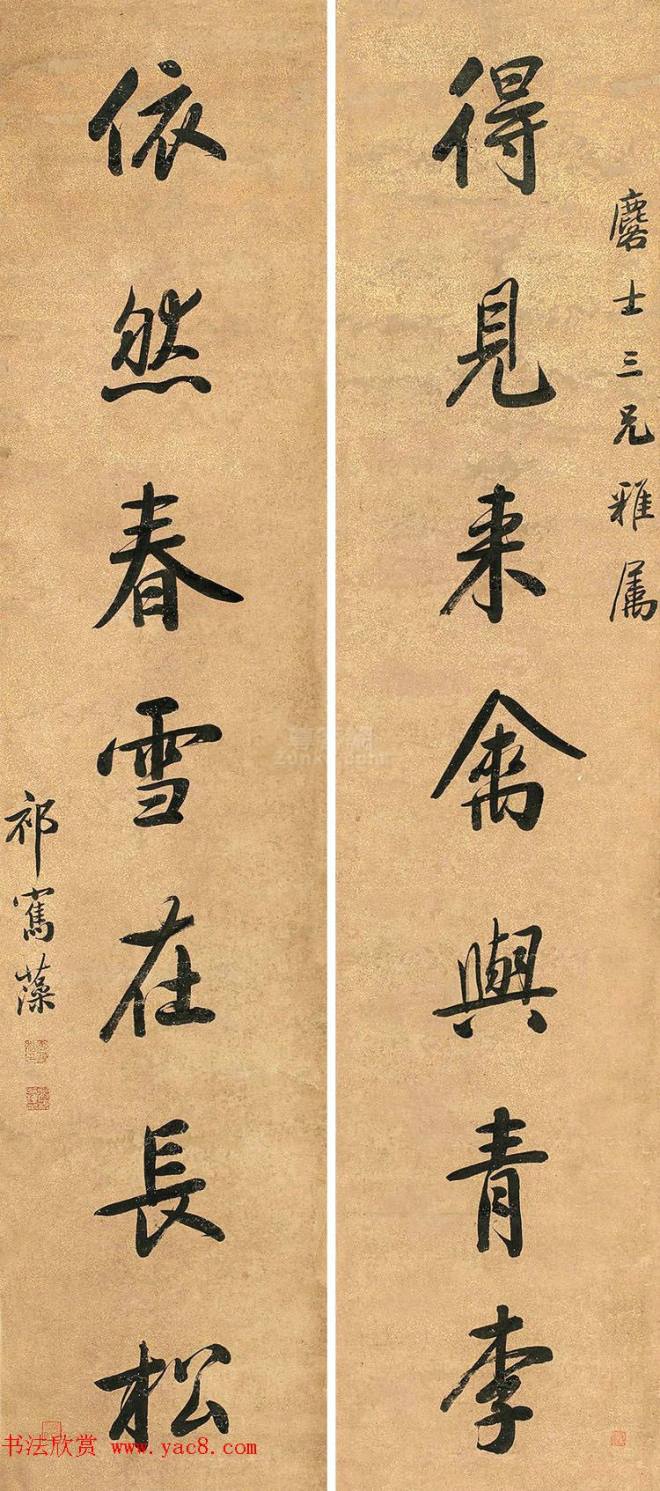 士三兄雅属
得見来禽與青李
依然春雪在長松
祁寯藻
书法欣赏 www.yac8.com